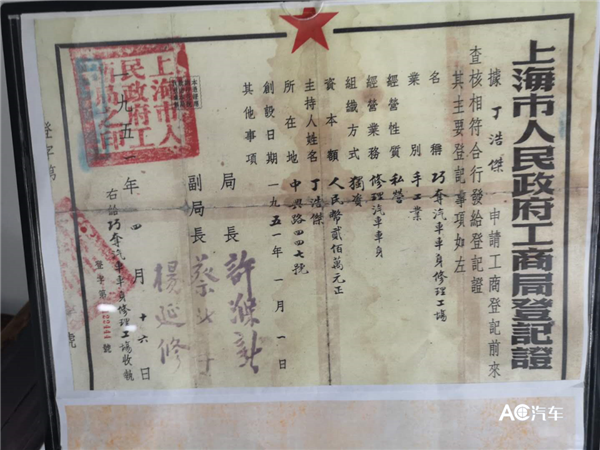 上海市人民政府工商局登記證
據丁浩傑申請工商登記前來
查核相符合行發給登記證
其主要登記事項如左
名稱 巧奪汽車車身修理工場
業別 手工業
經營性質 私營
經營業務 修理汽車車身
組織方式 獨資
資本額 人民幣貳佰萬元正
主持人姓名 丁浩傑
所在地 中興路四四七號
創設日期 一九五一年一月一日
其他事項
局長 許滌新
副局長
楊延修
一九五一年四月十六日
右給巧奪汽車車身修理工場收執
登字第
號
上海市人
民政府工
商局之印
AC汽车